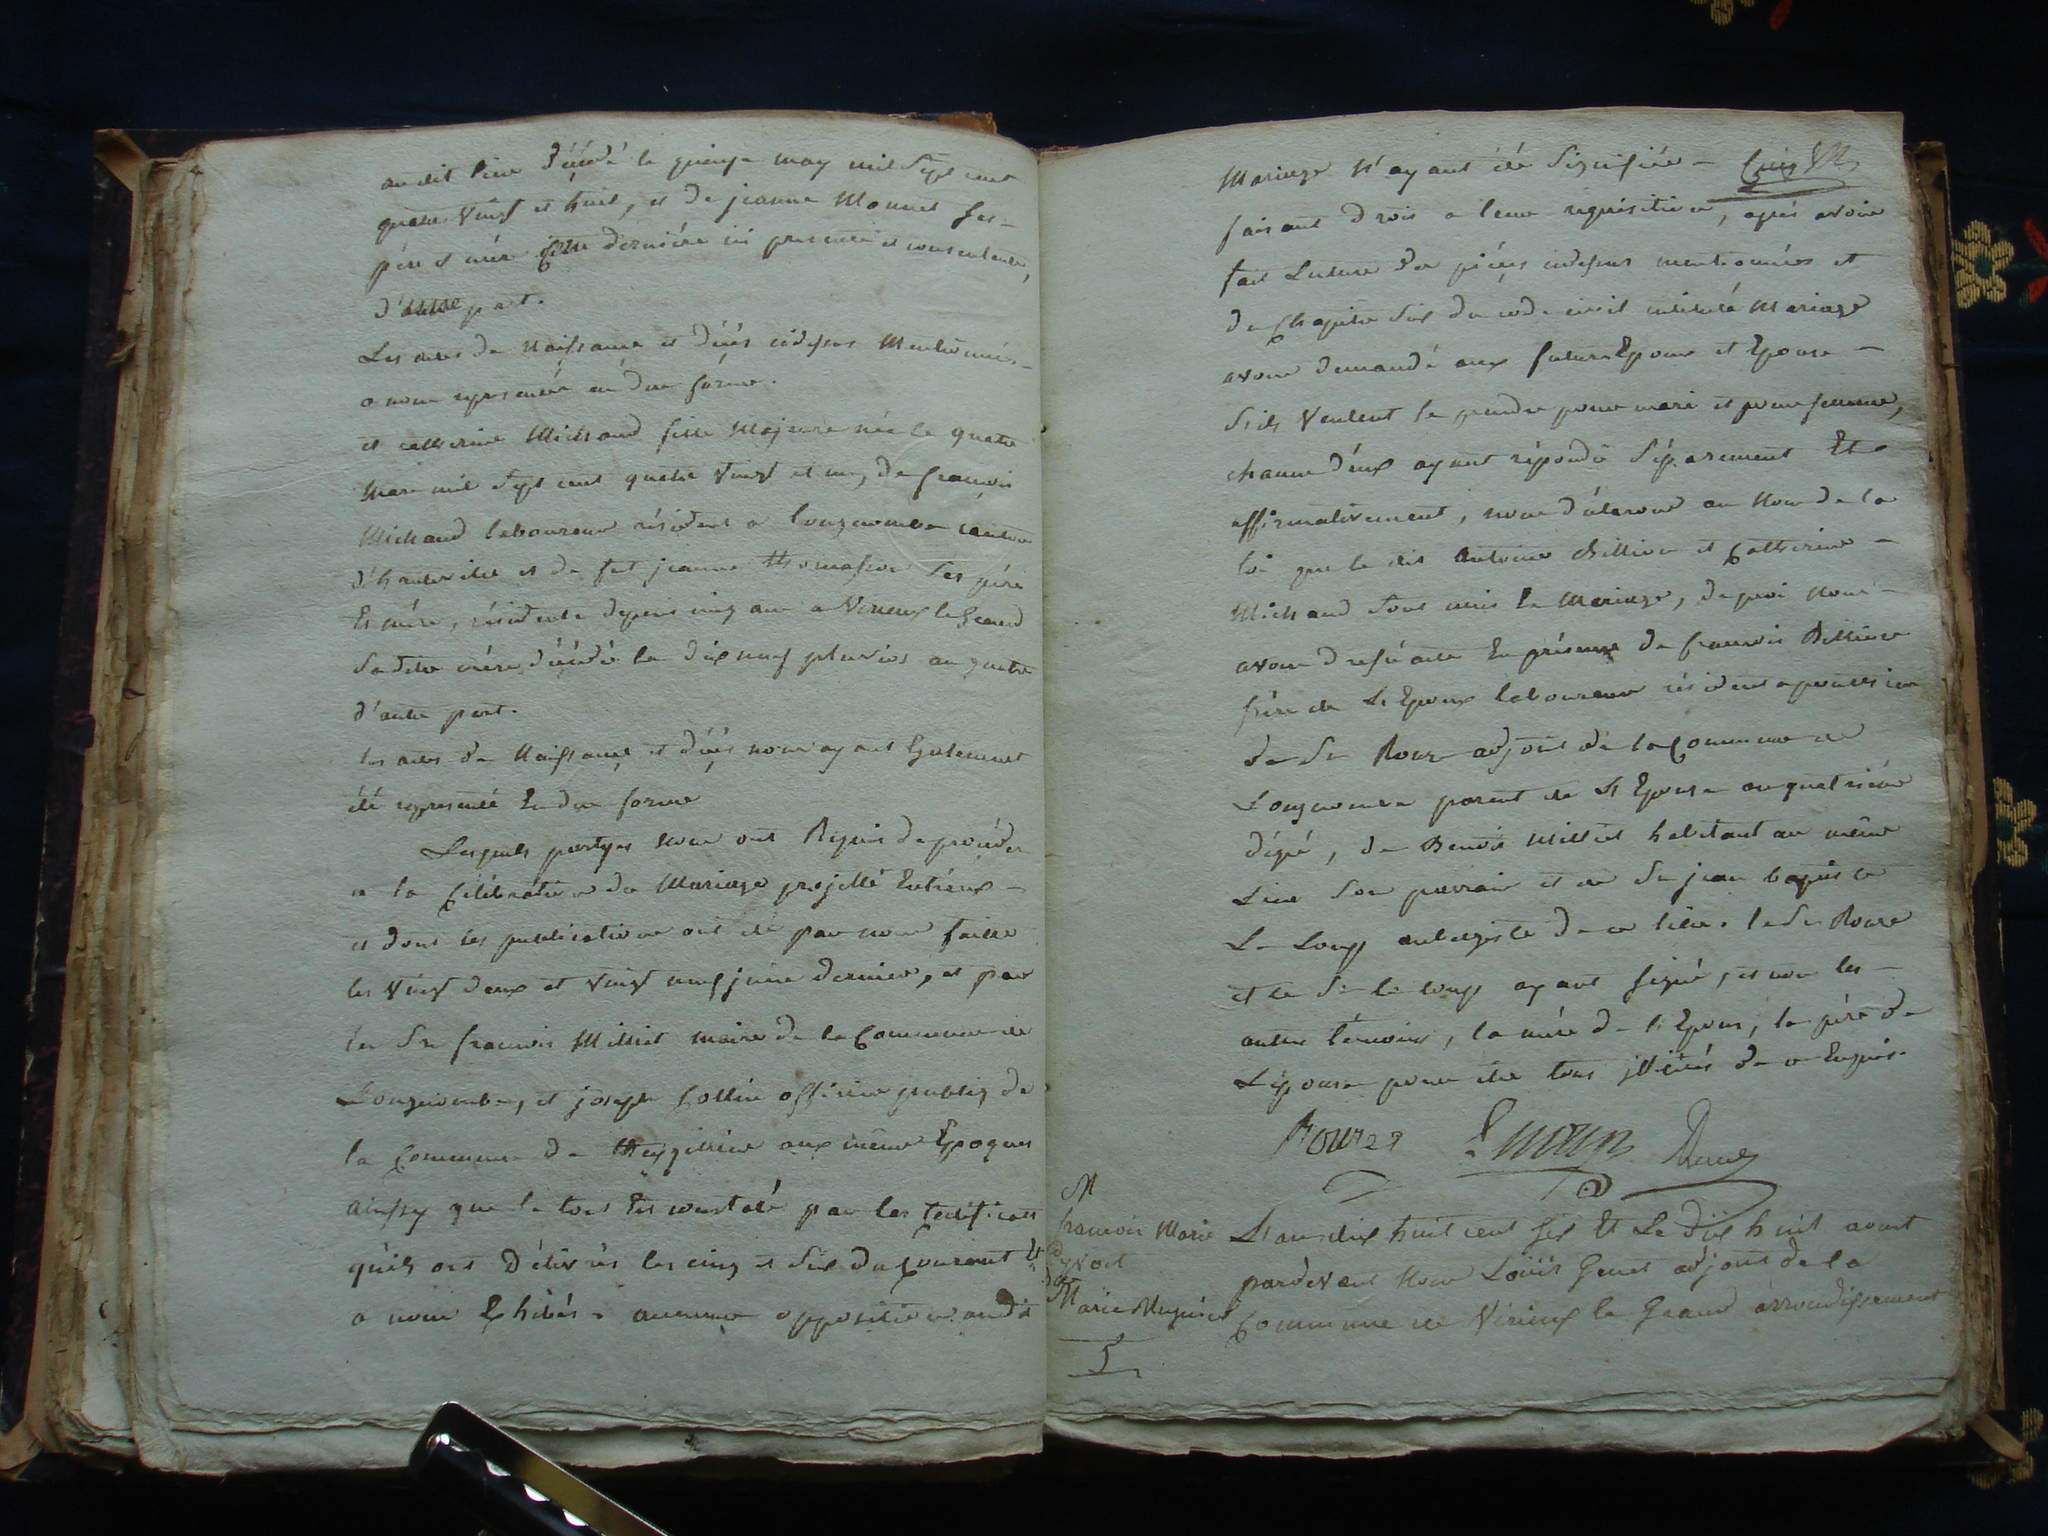 au dit lieu décédé le quinze may mil sept cent
quatre vingt et huit, et de jeanne Monnet ses
père et mère cette dernière ici presente et consentente,
d'une part.
Les actes de Naissance et décès cidessus Mentionnés
a nous représentés en due forme.
et catherine Michaud fille Majeure née le quatre
Mars mil sept cent quatre vingt et un, de françois
Michaud laboureur résident a longecombe canton
d'hauteville et de fut jeanne thomasson ses père
Et mère, résidente depuis cinq ans a Virieux le Grand
Sadite mère décédé le dix neuf pluvios an quatre
d'autre part.
les actes de Naissance et décès nous ayant Egalement
été représenté En due forme
Lesquels partyes nous ont Requis de procéder
a la Célébration du Mariage projetté Entreux
et dont les publications ont été par nous faitte
les vingt deux et vingt neuf juin dernier, et par
les Srs françois Milliet maire de la Commune de
Longecombe, et joseph Collin officier public de
la Commune de aux même Epoques
ainssy que le tout Est constaté par les Certificats
qu'ils ont Délivrés les cinq et Six du Courant Et
a nous Exhibés. aucune opposition audit
Mariage N'ayant été Signifiée
faisant droit a leur réquisition, après avoir
fait Lecture des pièces cidessus mentionnées et
du Chapitre Six du code civil intitulé Mariage
avons demandé aux futurs Epoux et Epouse
S'ils veulent se prendre pour mari et pour femme,
chacun d'eux ayant répondû Séparement Et
affirmativement, nous déclarons au Nom de la
loi que le dit Antoine Billion et Catherine
Michaud Sont unis En Mariage, de quoi Nous
avons dressé acte En présence de françois Billion
frère de L'Epoux laboureur résident a
de Sr Roux adjoint de la Commune de
Longecombe parent de L'Epouse au quatrième
dégré, de Benoit Milliet habitant au même
Lieu Son parrain et de Sr jean baptiste
Le Loup aubergiste de ce lieu. le Sr Roux
et le Sr le loup ayant Signé, et non les
autres témoins, la mère de l'Epoux, le père de
L'épouse pour être tous illitérés de ce Enquis.
M
françois Marie
Marie
L'an dix huit cent Six Et Le Dix huit avout
pardevant Nous Loüis Genet adjoint de la
Commune de Virieux le Grand arrondissement